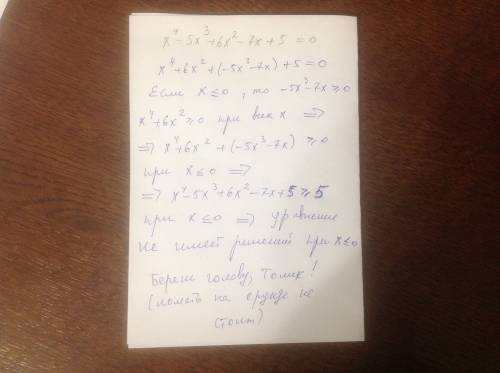 x⁴-5x³+6x²-7x+5=0
x⁴+6x²+(-5x³-7x)+5=0
Если x≤0, то -5x³-7x≥0
x⁴+6x²≥0 при всех x ⇒
⇒ x⁴+6x²+(-5x³-7x)≥0
при x≤0 ⇒
⇒ x⁴-5x³+6x²-7x+5≥5
при x≤0 ⇒ уравнение
не имеет решений при x≤0
Береги голову, Томек!
(ломать на ерунде не
стоит)